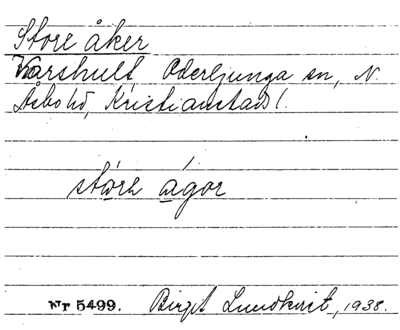 Store åker
Varshult, Oderljunga sn, N.
Åsbo hd, Kristianstads l.
störe ågor
Nr 5499. Birgit Lundkvist, 1938.